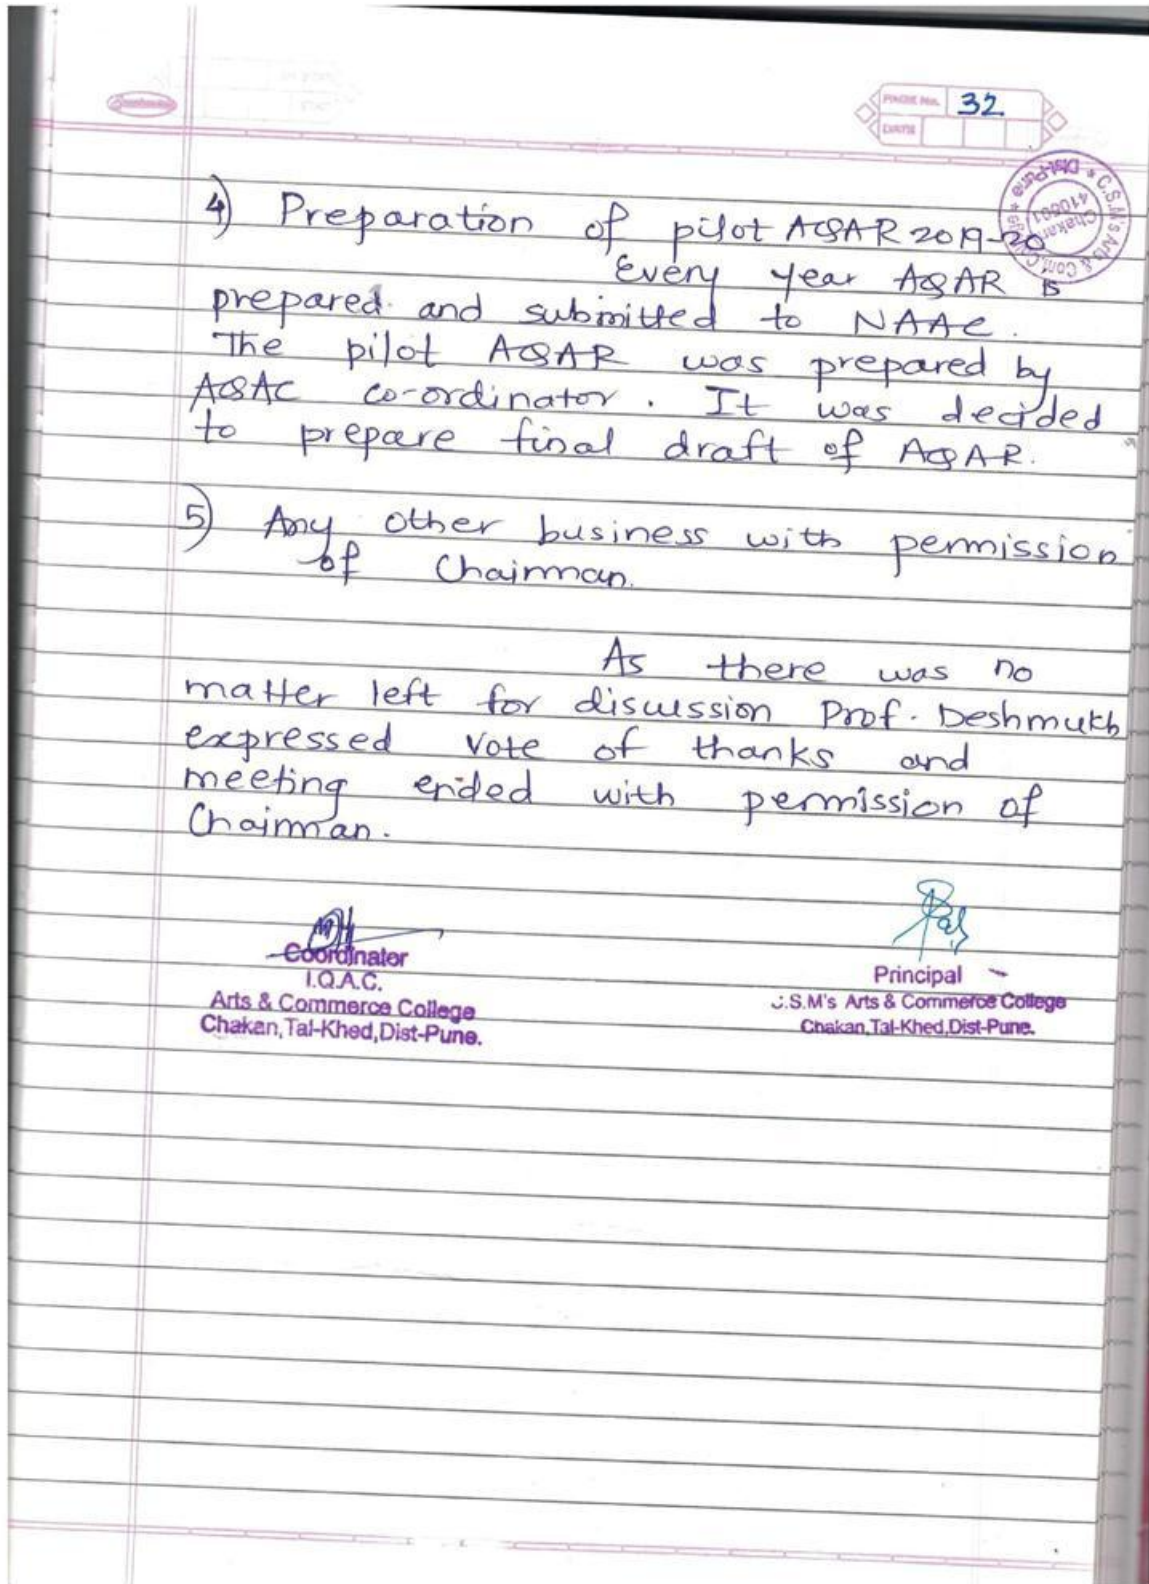 PAGE No. 32
DATE
C.S.M's Arts & Com. Chakan 410501 Dist-Pune
4) Preparation of pilot AQAR 2019-20
Every year AQAR is
prepared and submitted to NAAC.
The pilot AQAR was prepared by
AQAC co-ordinator. It was decided
to prepare final draft of AQAR.
5) Any other business with permission
of Chairman.
As there was no
matter left for discussion Prof. Deshmukh
expressed vote of thanks and
meeting ended with permission of
Chairman.
Coordinator
I.Q.A.C.
Arts & Commerce College
Chakan, Tal-Khed, Dist-Pune.
Principal
C.S.M's Arts & Commerce College
Chakan, Tal-Khed, Dist-Pune.